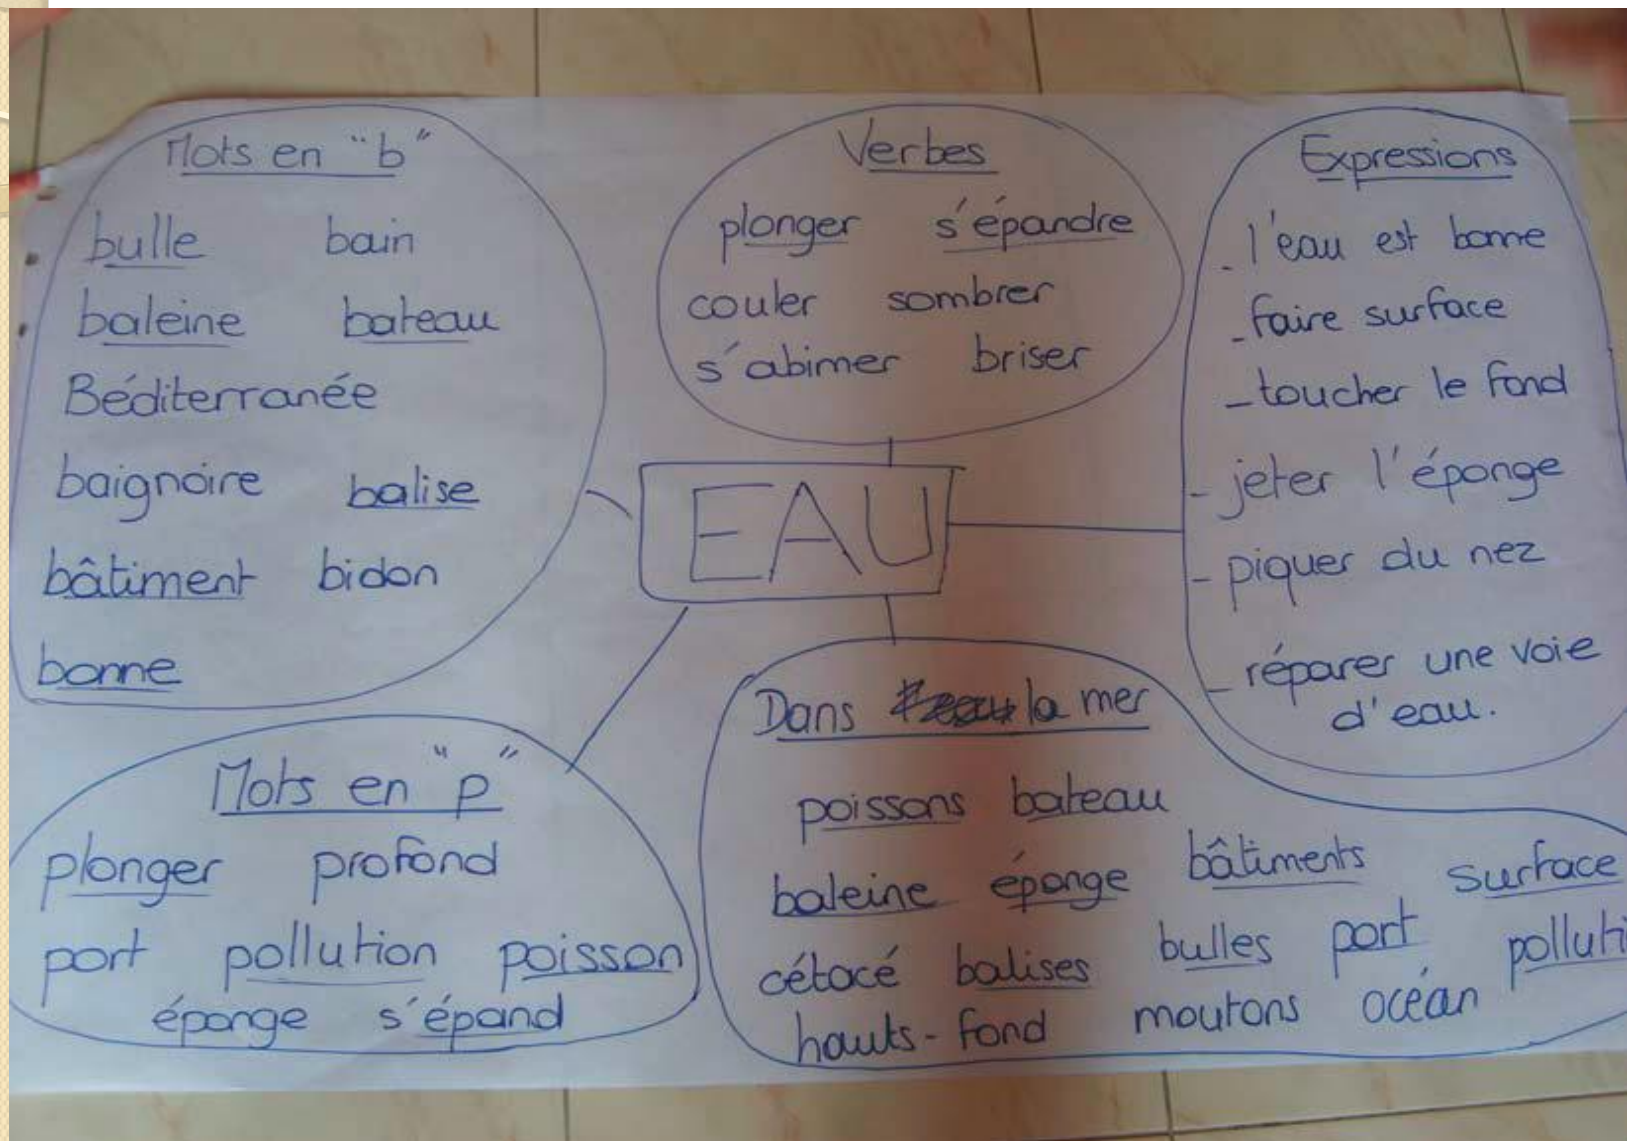 Mots en "b"
bulle bain
baleine bateau
Béditerranée
baignoire balise
bâtiment bidon
bonne
Verbes
plonger s'épandre
couler sombrer
s'abimer briser
Expressions
- l'eau est bonne
- faire surface
- toucher le fond
- jeter l'éponge
- piquer du nez
- réparer une voie
d'eau.
EAU
Mots en "p"
plonger profond
port pollution poisson
éponge s'épand
Dans la mer
poissons bateau
baleine éponge bâtiments surface
cétacé balises bulles port polluti
hauts-fond moutons océan